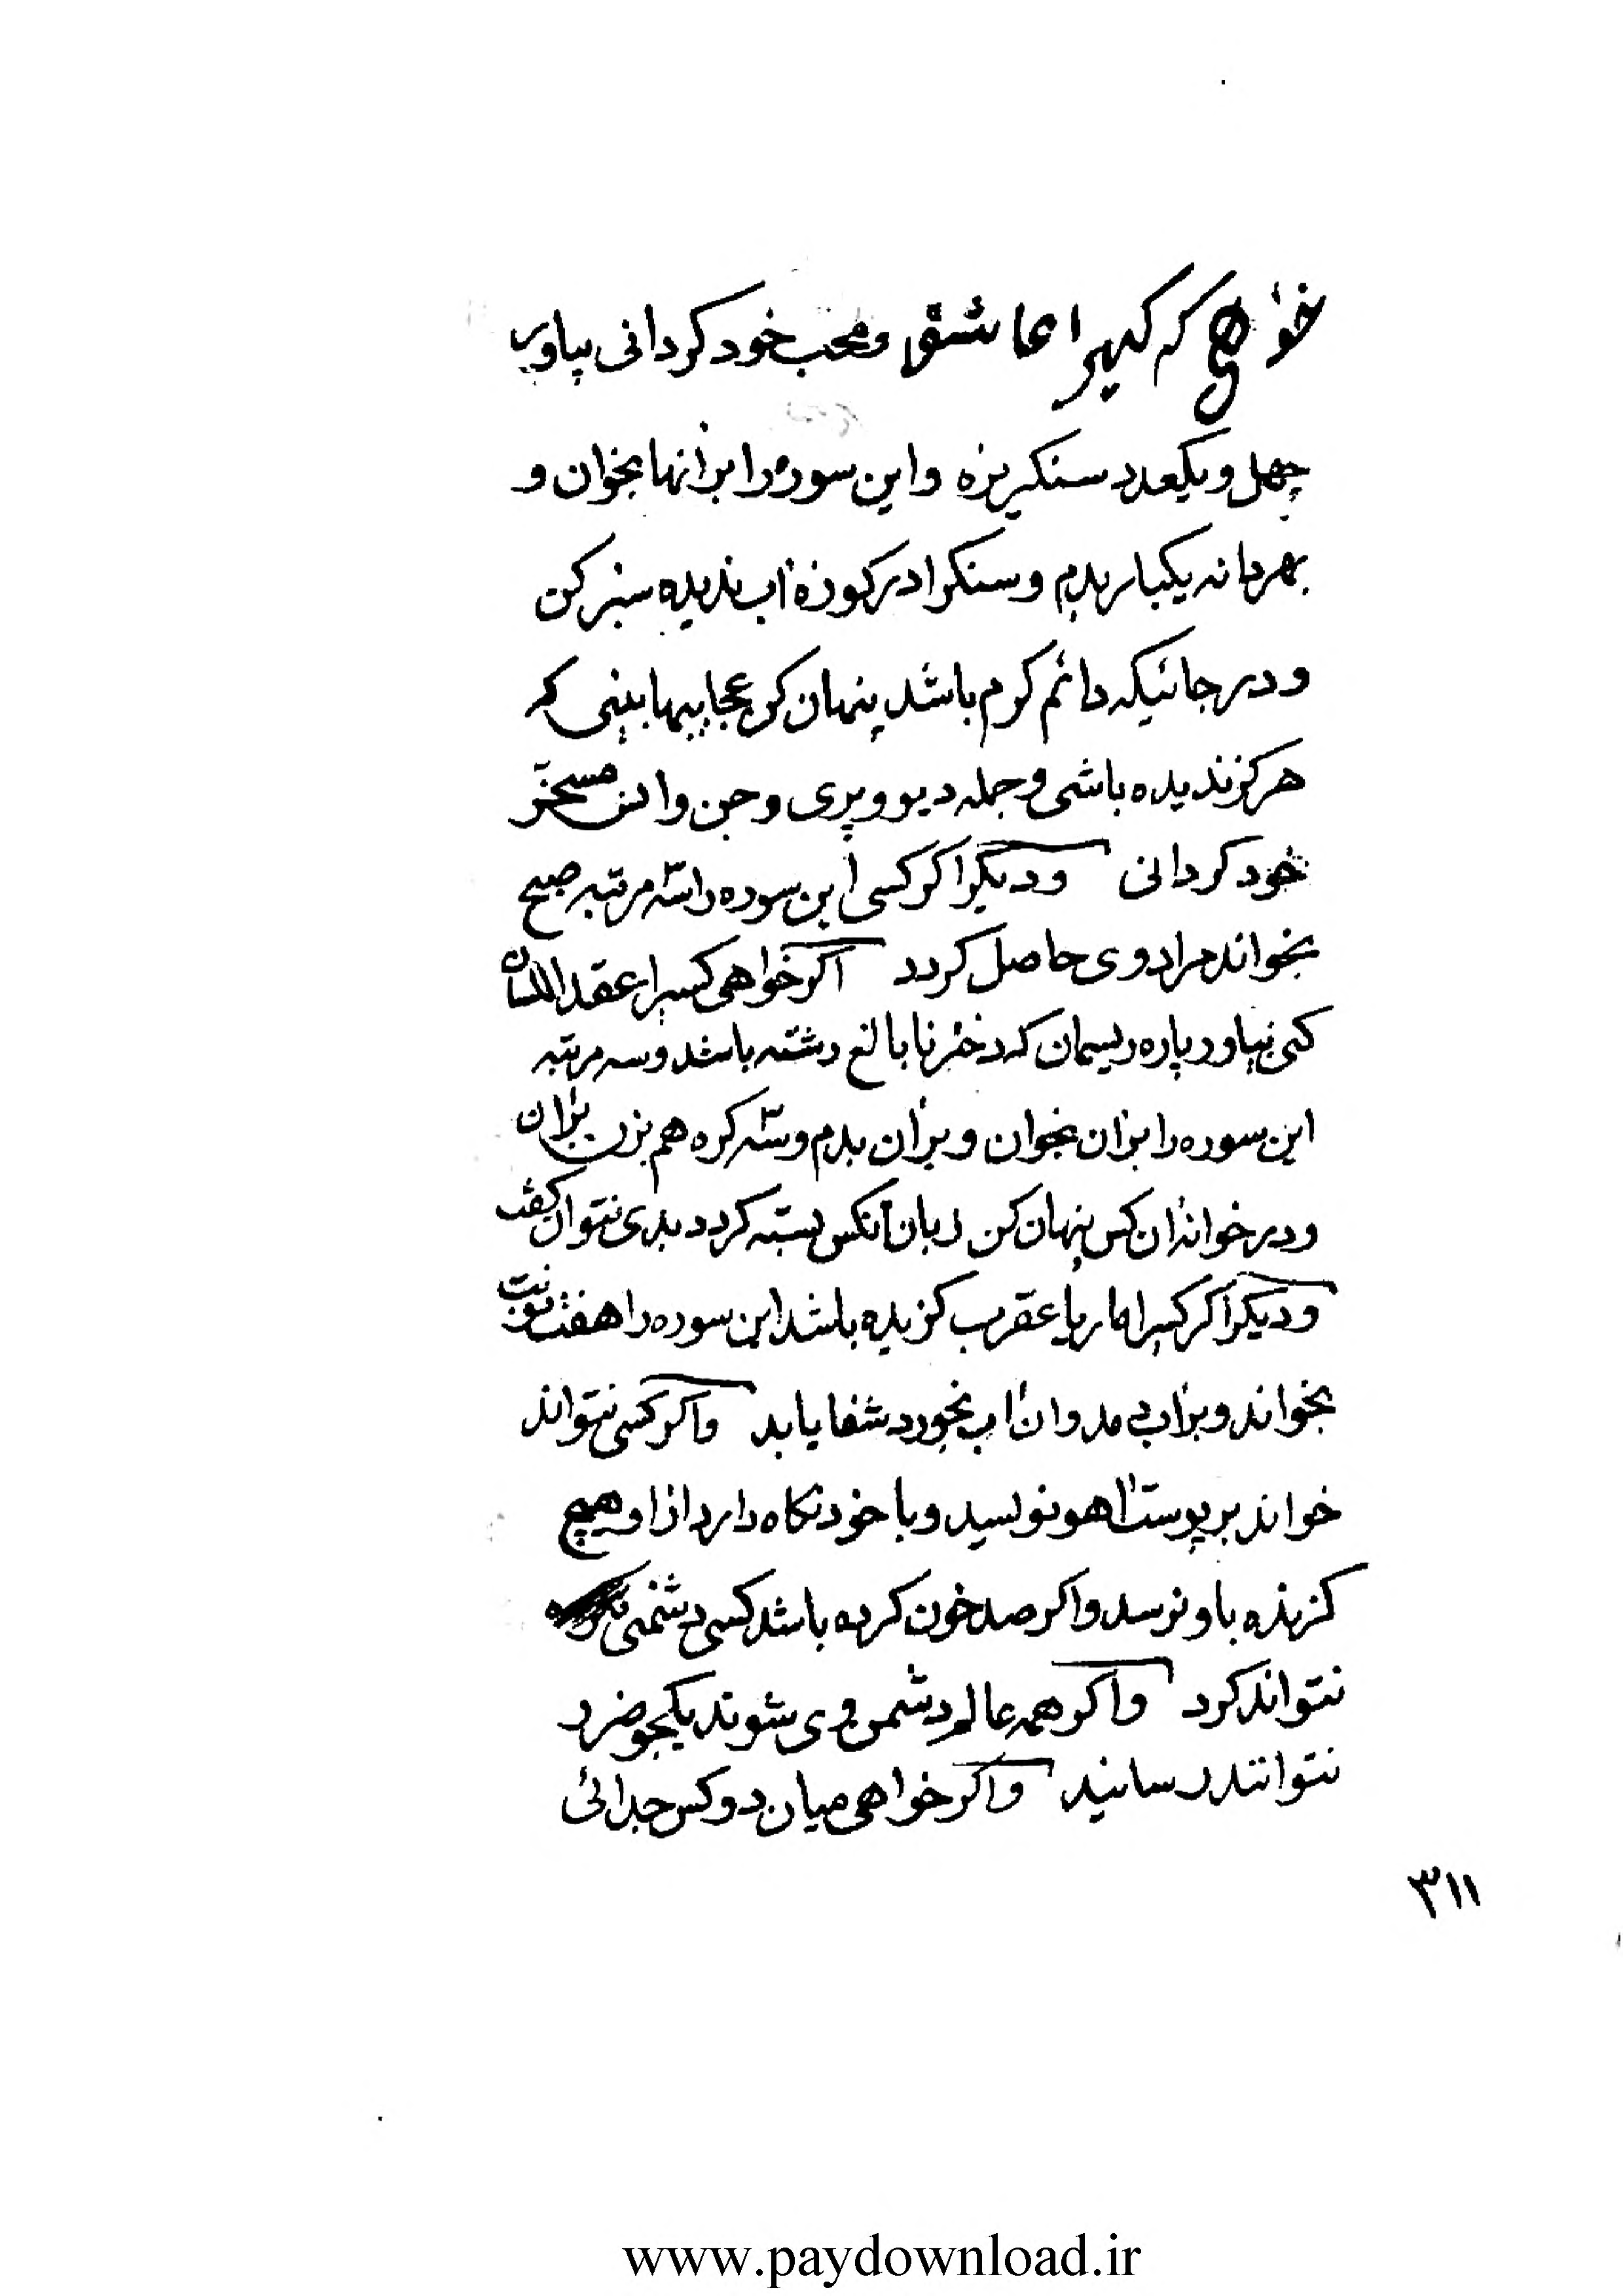 خواهی که کسیرا عاشق و محب خود کردانی بیاور
چهل و یکعدد سنکریزه واین سوره را برانها بخوان و
بهر دانه یکبار بدم و سنکرا در کوزهٔ اب ندیده سبز کن
و در جائیکه دائم کرم باشد پنهان کن عجایبها بینی که
هرکز ندیده باشی و جمله دیو و پری و جن وانس مسخر
خود کردانی ودیکر اکر کسی این سوره را سه مرتبه صبح
بخواند مراد وی حاصل کردد اکر خواهی کسیرا عقد اللسان
کنی بیاور پاره ریسمان که دختر نابالغ رشته باشد وسه مرتبه
این سوره را بران بخوان و بران بدم و سه کره هم بزن بران
و در خوانهٔ ان کس پنهان کن زبان آنکس بسته کردد بدی نتوان کفت
ودیکر اکر کسیرا مار یا عقرب کزیده باشد این سوره را هفت نوبت
بخواند و براب بدمد وان اب بخورد شفا یابد واکر کسی نتواند
خواند بر پوست اهو نویسد و با خود نکاه دارد از او هیچ
کزنده باو نرسد واکر صد خون کرده باشد کسی دشمنی
نتواند کرد واکر همه عالم دشمن وی شوند یکجو ضرر
نتوانند رسانید واکر خواهی میان دو کس جدائی
۳۱۱
www.paydownload.ir